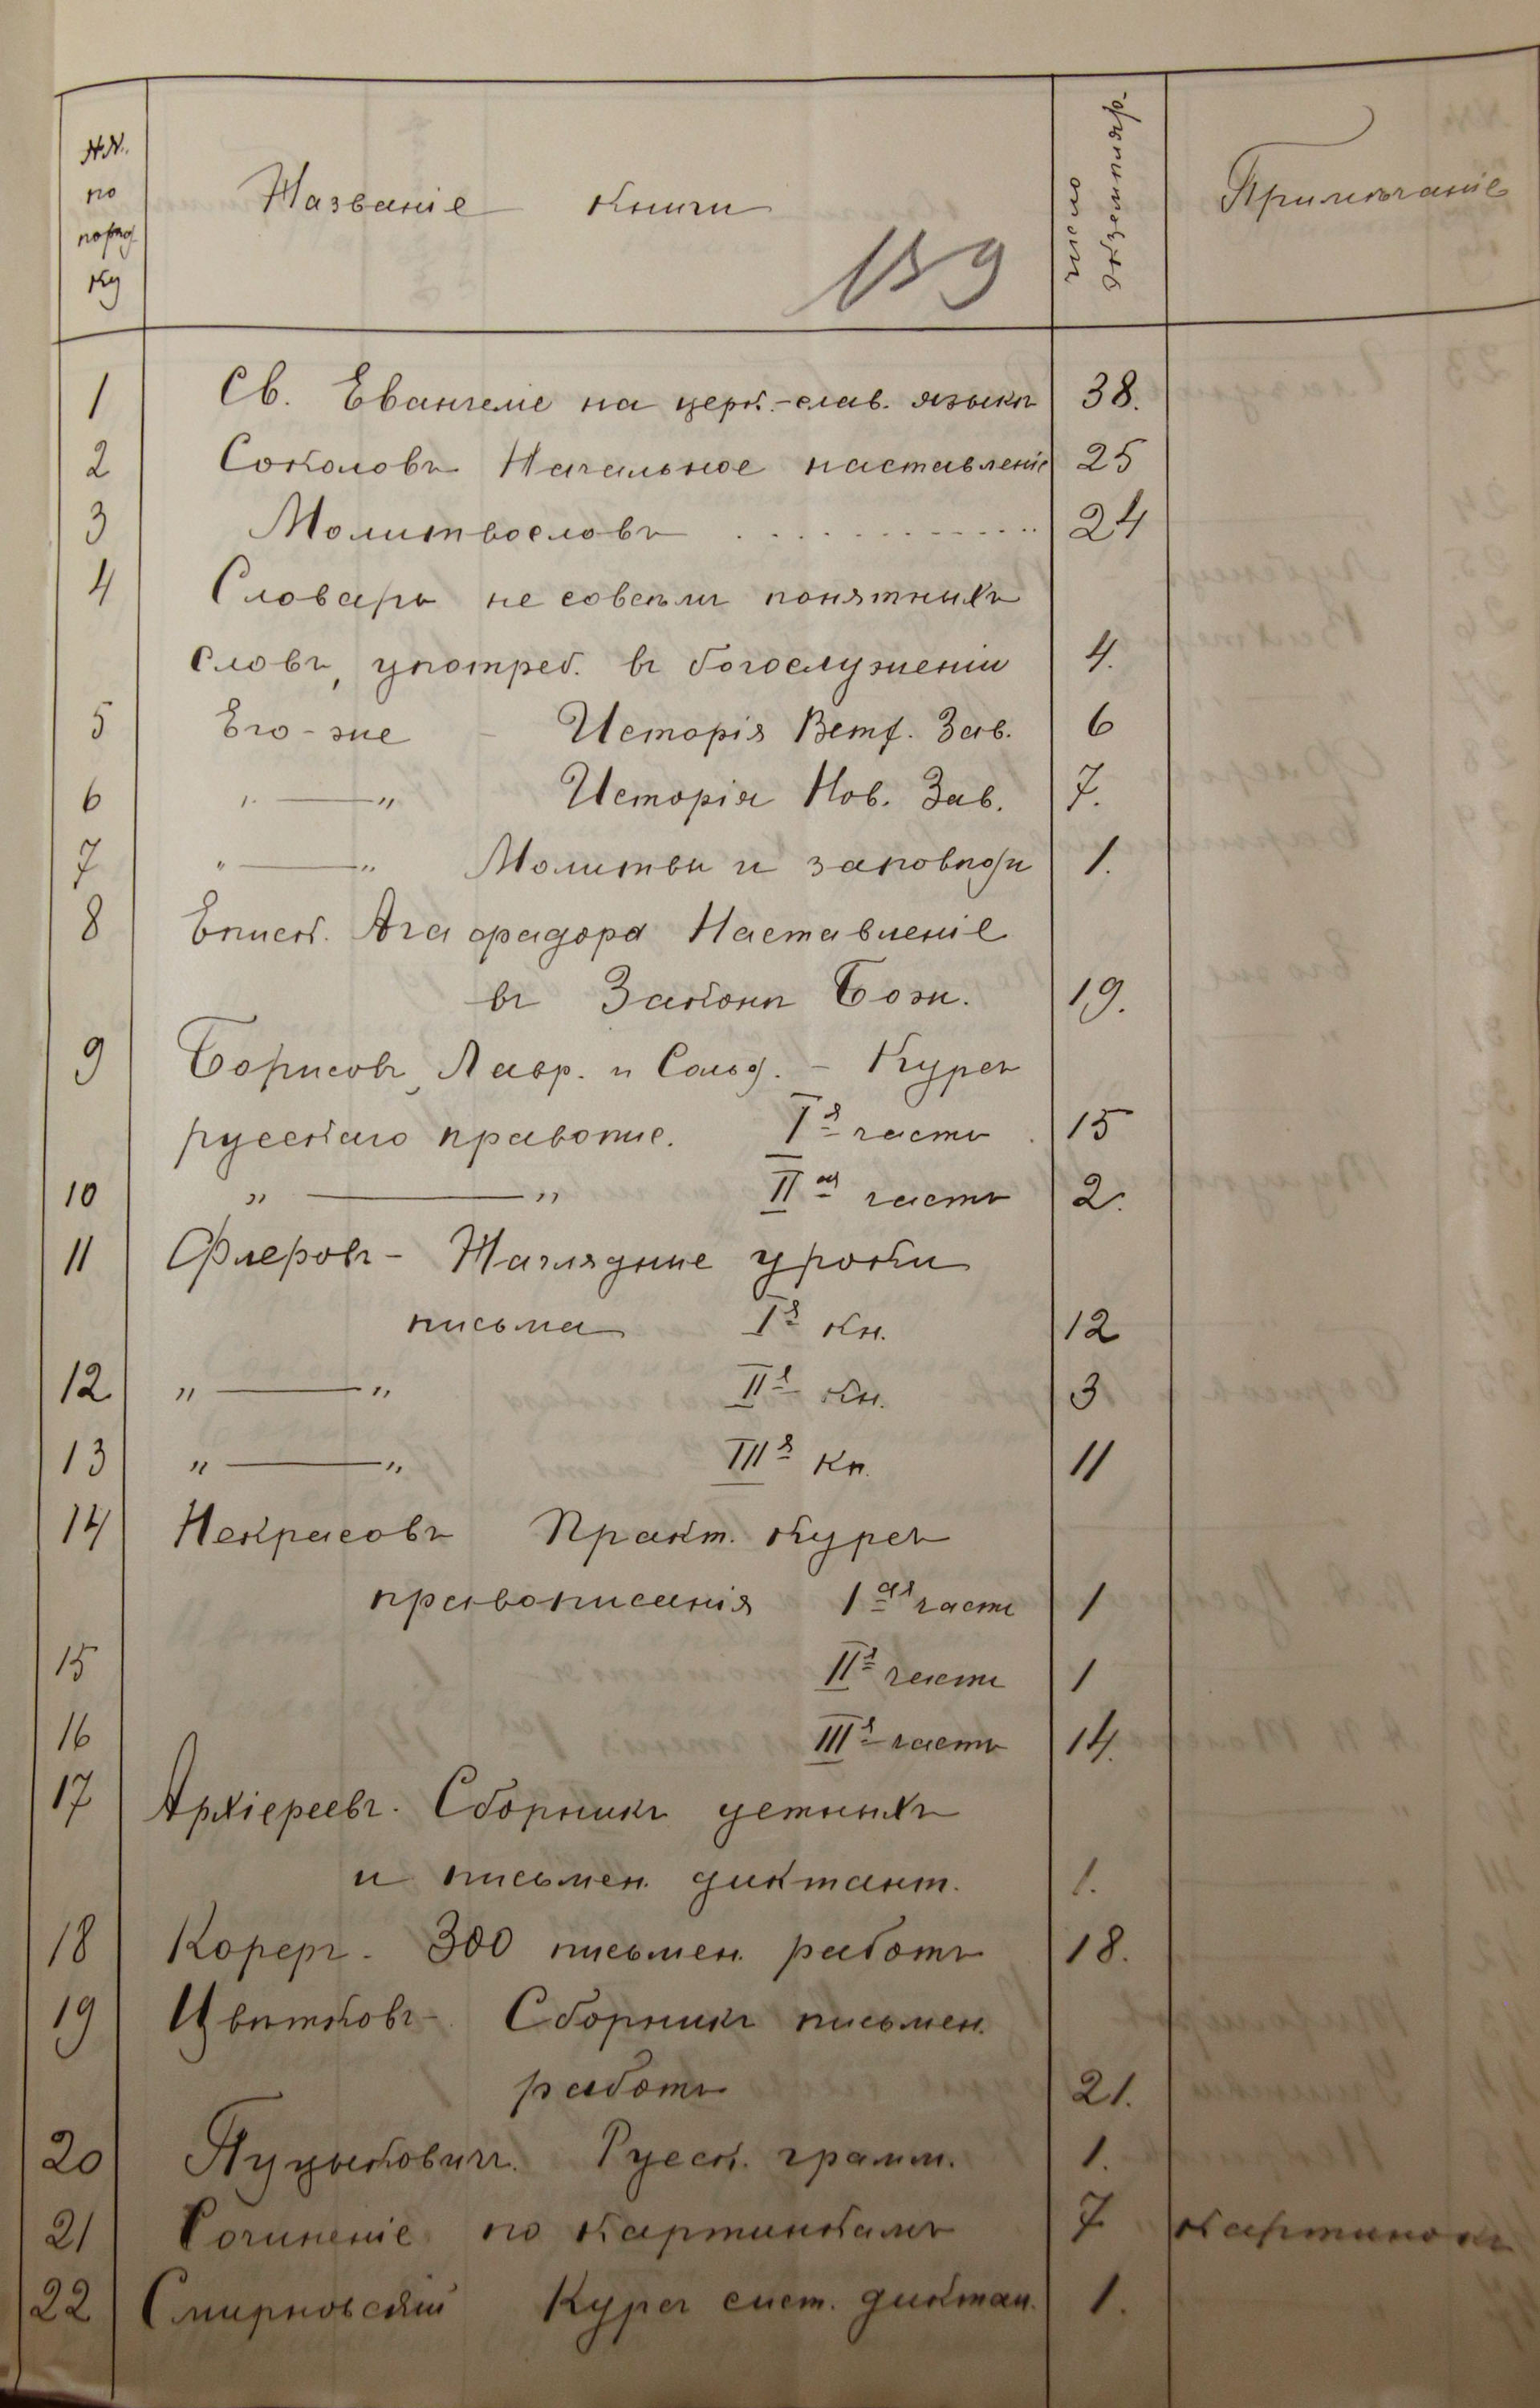 №№ по порядку Названіе книги Число экземпляр. Примѣчаніе
159
1 Св. Евангеліе на церк.-слав. языкѣ 38.
2 Соколовъ Начальное наставленіе 25
3 Молитвословъ . . . . . . . . . . . . 24
4 Словарь не совсѣмъ понятныхъ
словъ, употреб. въ богослуженіи 4.
5 Его-же – Исторія Ветх. Зав. 6
6 " — " Исторія Нов. Зав. 7.
7 " — " Молитвы и заповѣди 1.
8 Еписк. Агафадора Наставленіе
въ Законѣ Бож. 19.
9 Борисовъ, Лавр. и Сольд. – Курсъ
русскаго правопис. I я часть 15
10 " — " II ая часть 2.
11 Флеровъ – Наглядные уроки
письма I я кн. 12
12 " — " II я кн. 3
13 " — " III я кн. 11
14 Некрасовъ Практ. курсъ
правописанія 1 ая часть 1
15 II я часть 1
16 III я часть 14.
17 Архіереевъ. Сборникъ устныхъ
и письмен. диктант. 1.
18 Кореръ. 300 письмен. работъ 18.
19 Цвѣтковъ – Сборникъ письмен.
работъ 21.
20 Пуцыковичъ. Русск. грамм. 1.
21 Сочиненіе по картинкамъ 7 картинокъ
22 Смирновскій Курсъ сист. диктан. 1.